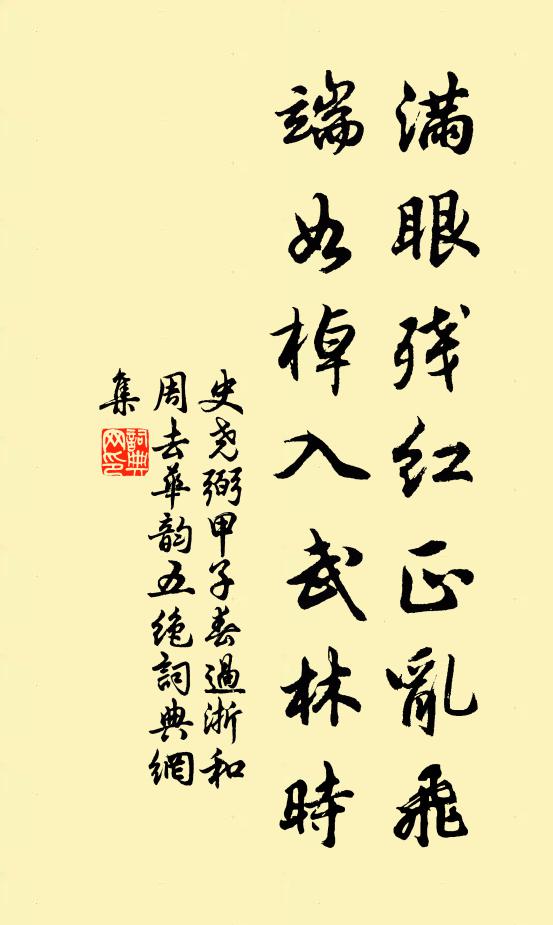 满眼残红正亂飛
端如棹入武林時
史尧弼甲子春過浙和
周去華韵五绝詞典網
集
詞典
网印